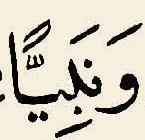 وَنَبِيًّا